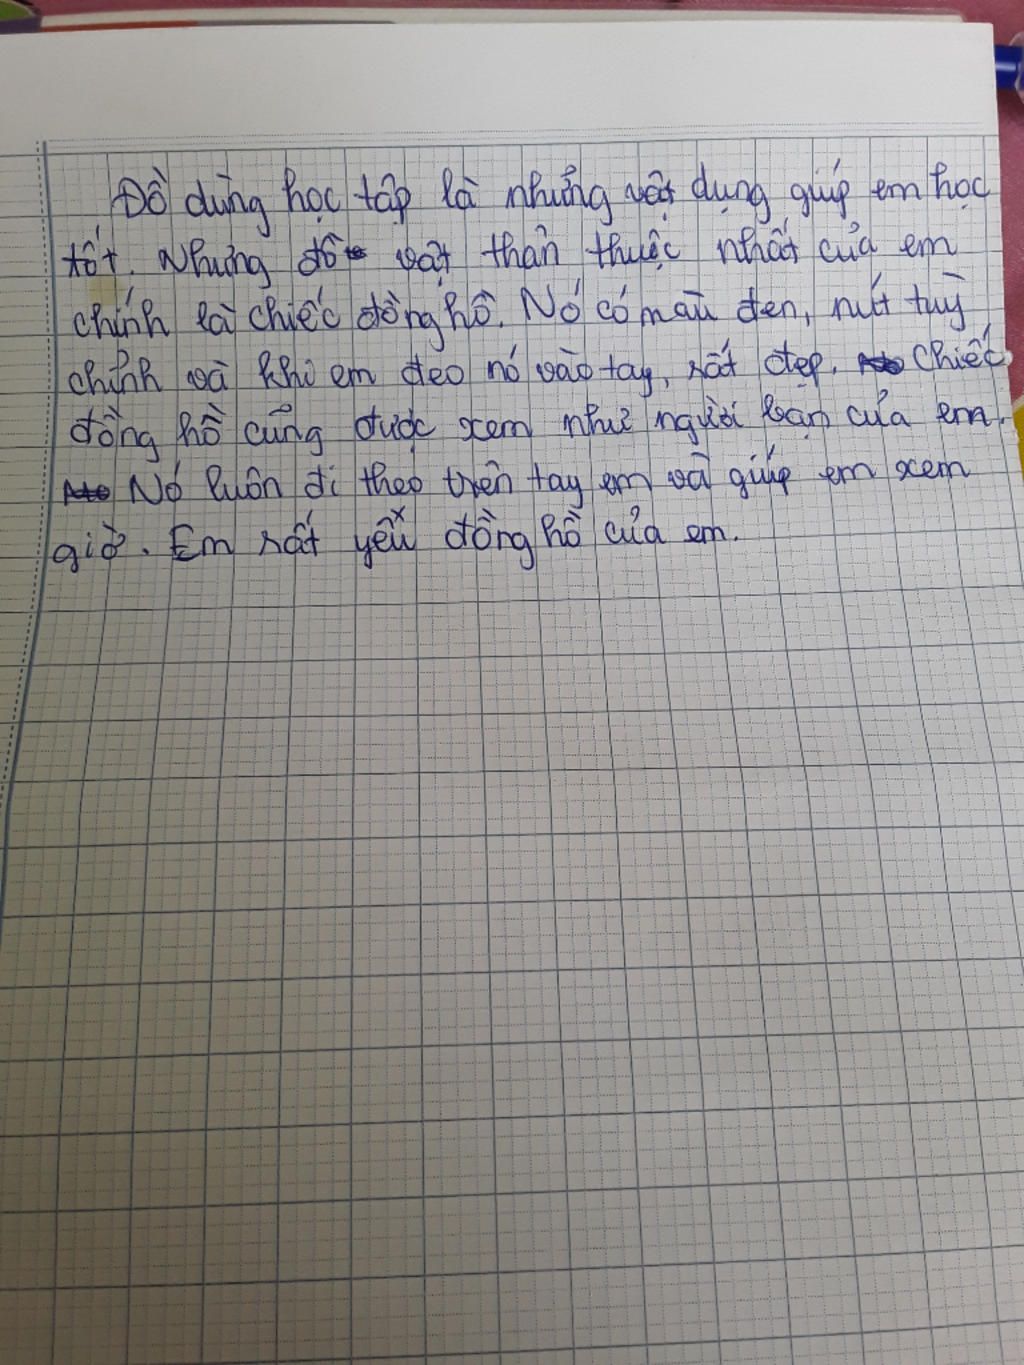 Đồ dùng học tập là những vật dụng giúp em học
tốt. Nhưng đồ vật thân thuộc nhất của em
chính là chiếc đồng hồ. Nó có màu đen, nút tuỳ
chỉnh và khi em đeo nó vào tay, rất đẹp. Chiếc
đồng hồ cũng được xem như người bạn của em.
Nó luôn đi theo trên tay em và giúp em xem
giờ. Em rất yêu đồng hồ của em.